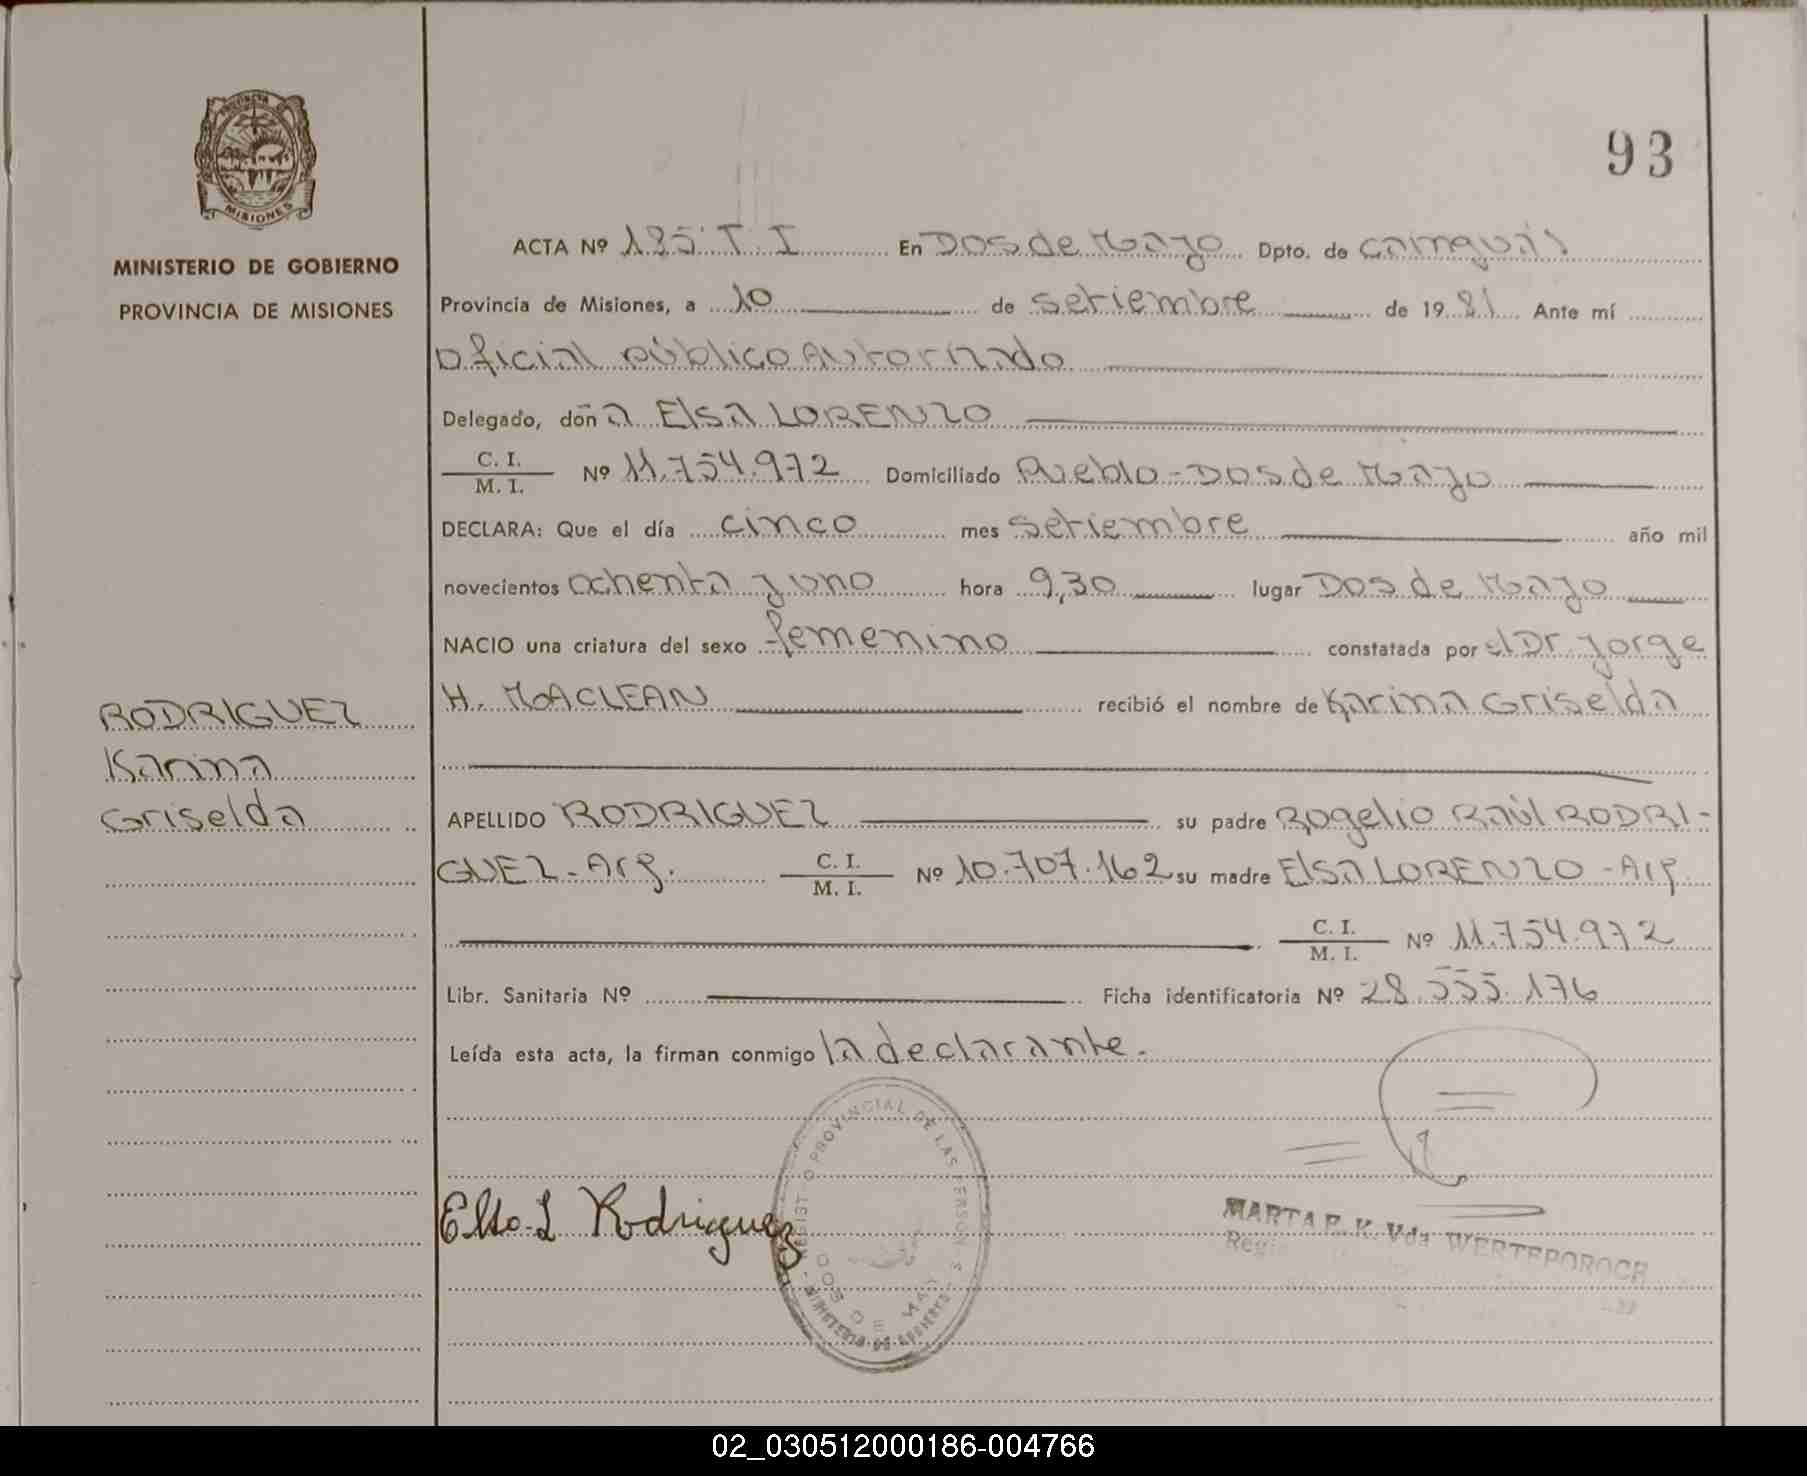 93
MINISTERIO DE GOBIERNO
PROVINCIA DE MISIONES
ACTA Nº 185 T. I En Dos de Mayo Dpto. de Cainguás
Provincia de Misiones, a 10 de setiembre de 1981 Ante mí
Oficial Público Autorizado
Delegado, doña Elsa LORENZO
C. I.
M. I. Nº 11.754.972 Domiciliado Pueblo - Dos de Mayo
DECLARA: Que el día cinco mes setiembre año mil
novecientos ochenta y uno hora 9,30 lugar Dos de Mayo
NACIO una criatura del sexo femenino constatada por el Dr. Jorge
H. MACLEAN recibió el nombre de Karina Griselda
RODRIGUEZ
Karina
Griselda
APELLIDO RODRIGUEZ su padre Rogelio Raúl RODRI-
GUEZ - Arg. C. I.
M. I. Nº 10.707.162 su madre Elsa LORENZO - Arg.
C. I.
M. I. Nº 11.754.972
Libr. Sanitaria Nº Ficha identificatoria Nº 28.555.176
Leída esta acta, la firman conmigo la declarante.
Elsa L Rodriguez
PROVINCIAL DE LAS PERSONAS
MARTA E. K. Vda WERTEPOROCH
02_030512000186-004766